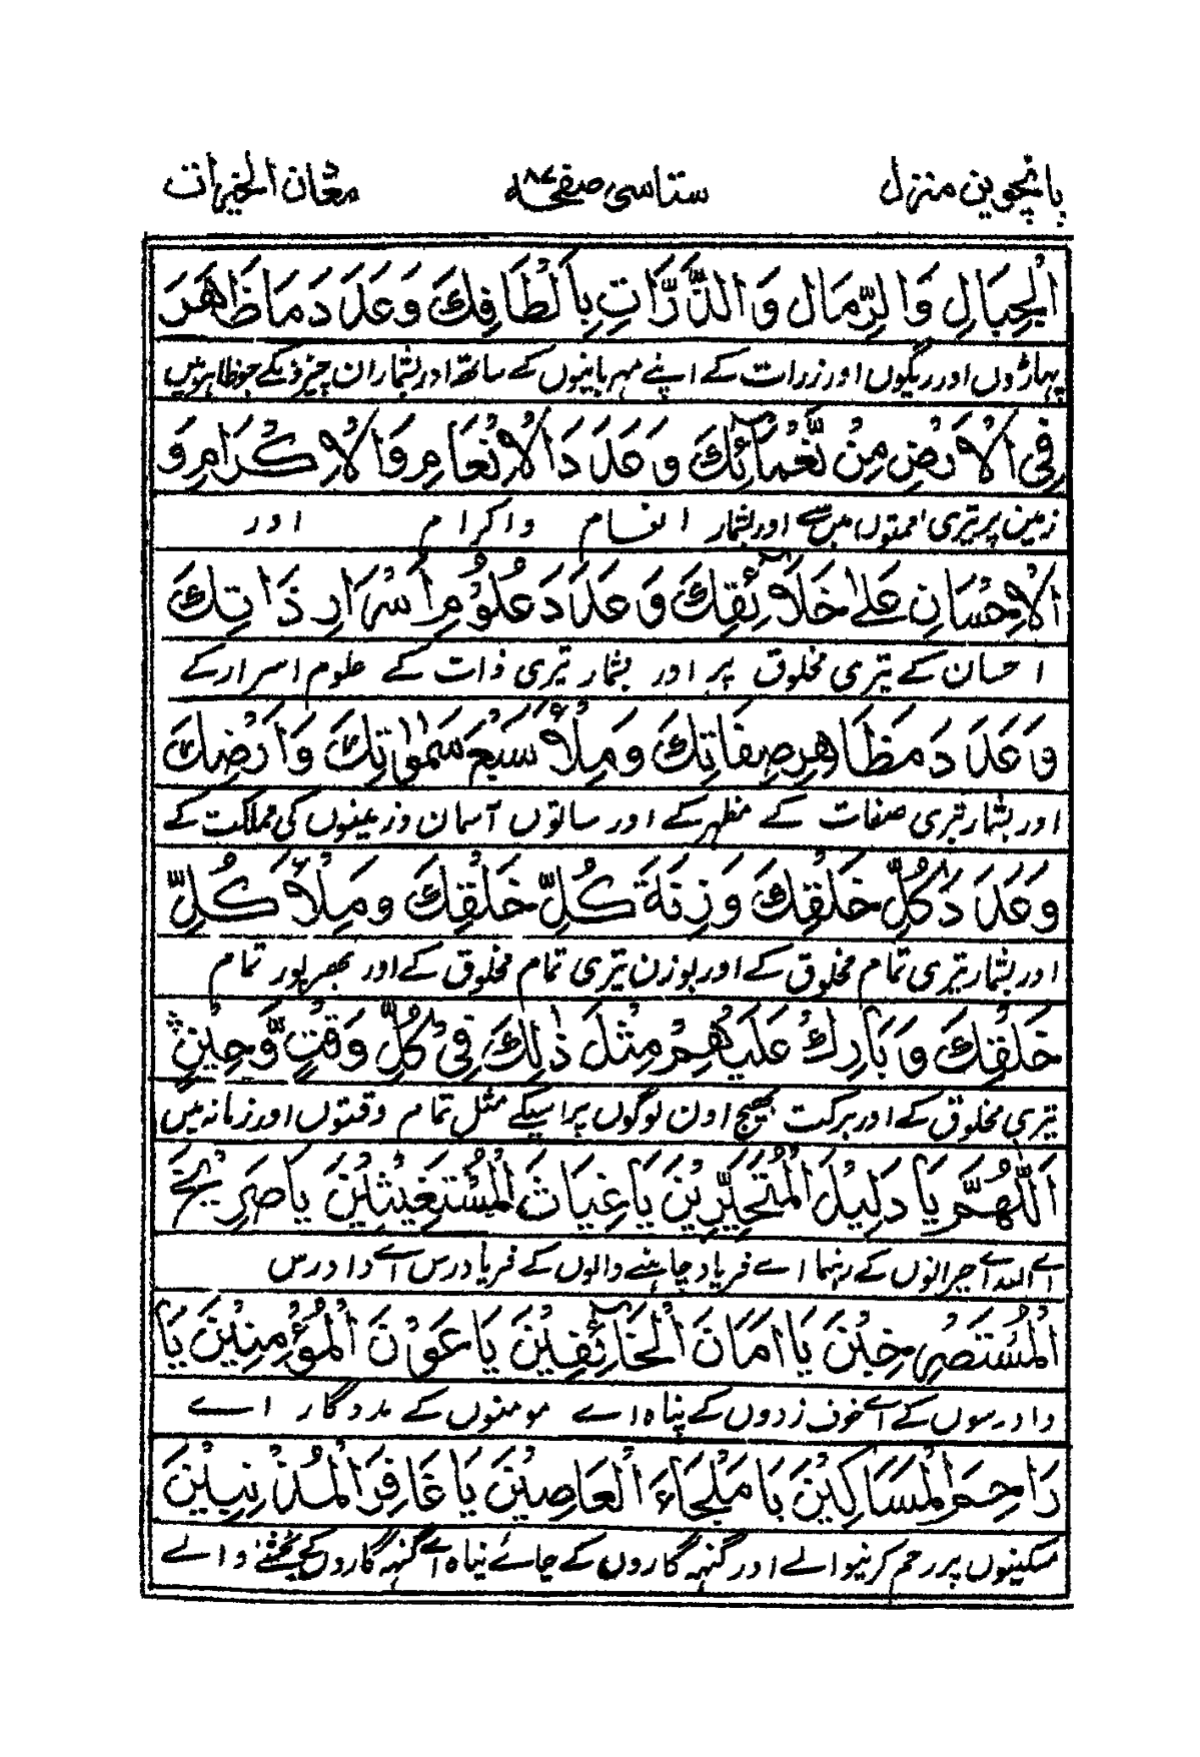 پانچویں منزل ستاسی صفحہ ۸۷ معدن الخیرات
الْجِبَالِ وَالرِّمَالِ وَالذَّرَّاتِ بِاَلْطَافِكَ وَعَدَدَ مَا ظَاهَرَ
پہاڑوں اور ریگوں اور زرات کے اپنے مہربانیوں کے ساتھ اور بشمار ان چیزونکے جو ظاہر ہیں
فِی الْاَرْضِ مِنْ نَّعْمَآئِكَ وَعَدَدَ الْاِنْعَامِ وَالْاِكْرَامِ وَ
زمین پر تیری نعمتوں میں سے اور بشمار انعام واکرام اور
الْاِحْسَانِ عَلٰى خَلَآئِقِكَ وَعَدَدَ عُلُوْمِ اَسْرَارِ ذَاتِكَ
احسان کے تیری مخلوق پر اور بشمار تیری ذات کے علوم اسرار کے
وَعَدَدَ مَظَاهِرِ صِفَاتِكَ وَمِلْأَ سَبْعِ سَمٰوٰتِكَ وَاَرْضِكَ
اور بشمار تیری صفات کے مظہر کے اور ساتوں آسمان وزمینوں کی مملکت کے
وَعَدَدَ كُلِّ خَلْقِكَ وَزِنَةَ كُلِّ خَلْقِكَ وَمِلْأَ كُلِّ
اور بشمار تیری تمام مخلوق کے اور بوزن تیری تمام مخلوق کے اور بھرپور تمام
خَلْقِكَ وَبَارِكْ عَلَيْهِمْ مِثْلَ ذٰلِكَ فِیْ كُلِّ وَقْتٍ وَّحِيْنٍ
تیری مخلوق کے اور برکت بھیج اون لوگوں پر اسیکے مثل تمام وقتوں اور زمانہ میں
اَللّٰهُمَّ يَا دَلِيْلَ الْمُتَحَيِّرِيْنَ يَا غِيَاثَ الْمُسْتَغِيْثِيْنَ يَا صَرِيْخَ
اے اللہ اے حیرانوں کے رہنما اے فریاد چاہنے والوں کے فریادرس اے دادرس
الْمُسْتَصْرِخِيْنَ يَا اَمَانَ الْخَآئِفِيْنَ يَا عَوْنَ الْمُؤْمِنِيْنَ يَا
دادرسوں کے اے خوف زدوں کے پناہ اے مومنوں کے مددگار اے
رَاحِمَ الْمَسَاكِيْنَ يَا مَلْجَاءَ الْعَاصِيْنَ يَا غَافِرَ الْمُذْنِبِيْنَ
مسکینوں پر رحم کرنیوالے اور گنہگاروں کے جائے پناہ اے گنہگاروں کے بخشنے والے